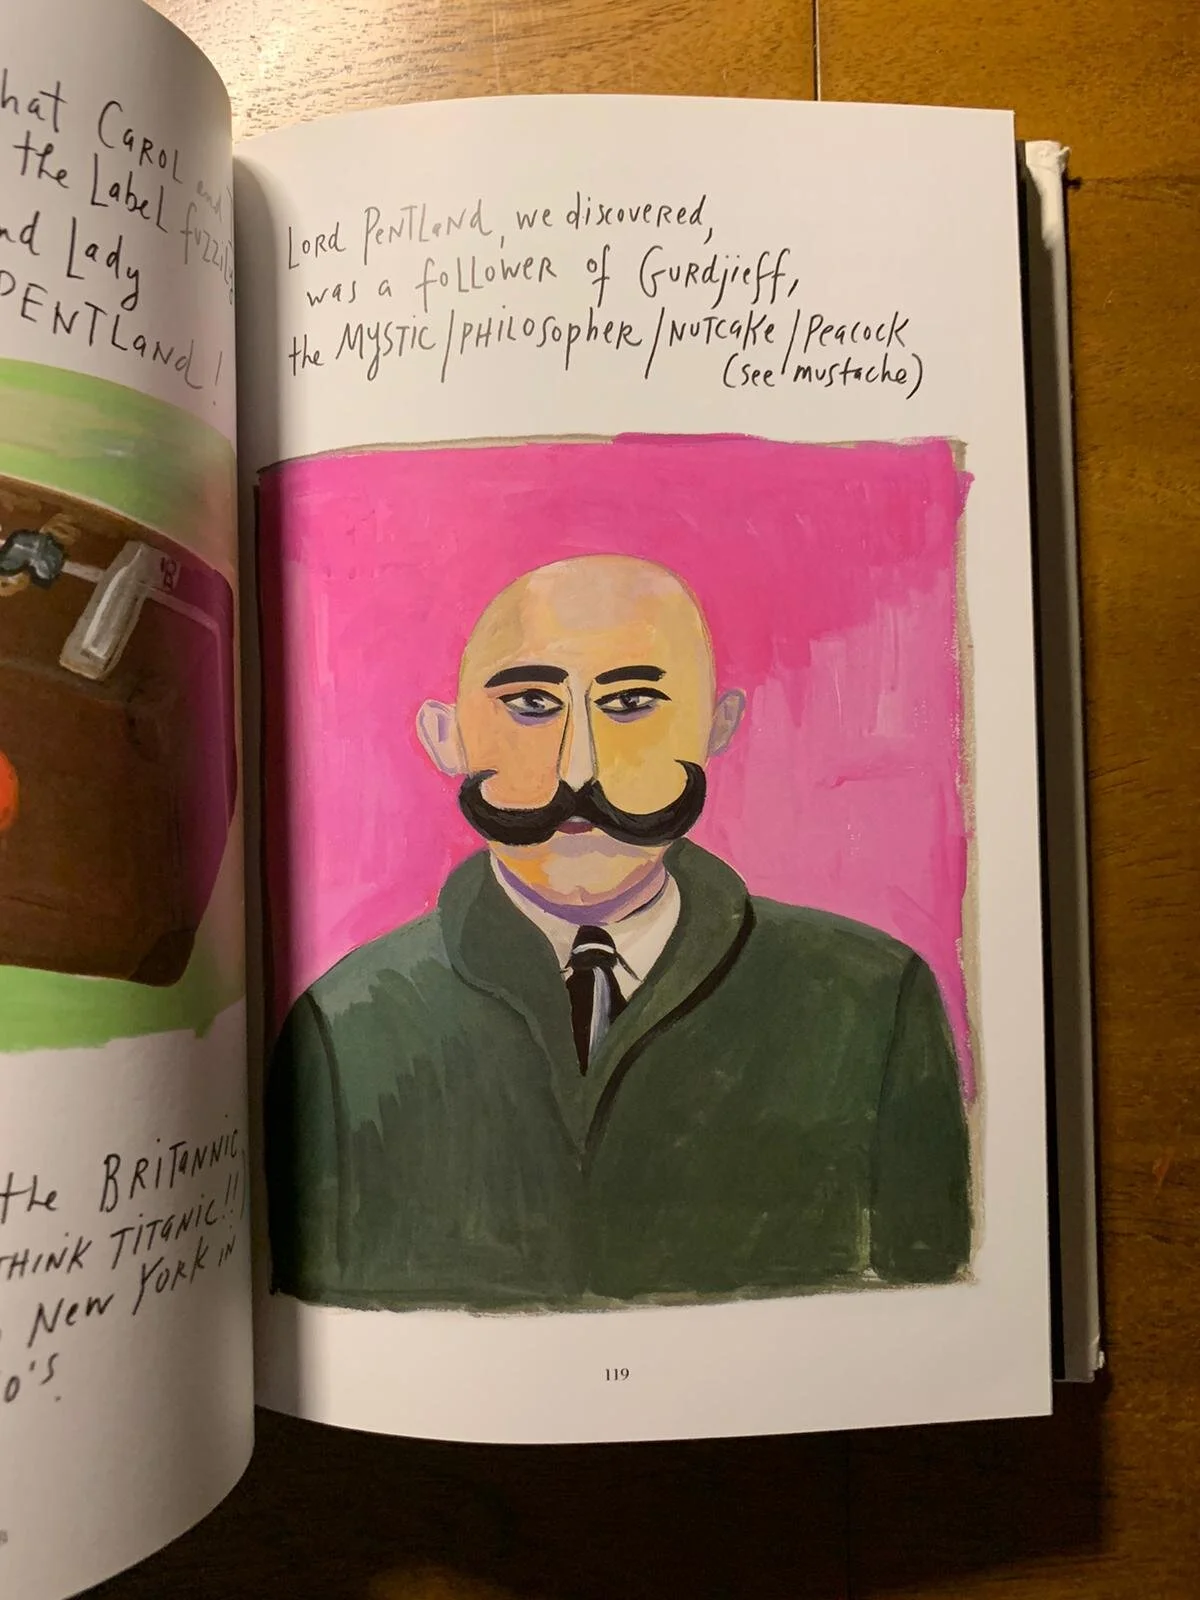 hat Carol and
the Label fuzzily
nd Lady
PENTLand!
the BRITANNIC
THINK TITANIC!!)
New York in
0's.
Lord Pentland, we discovered,
was a follower of Gurdjieff,
the Mystic/Philosopher/Nutcake/Peacock
(see mustache)
119